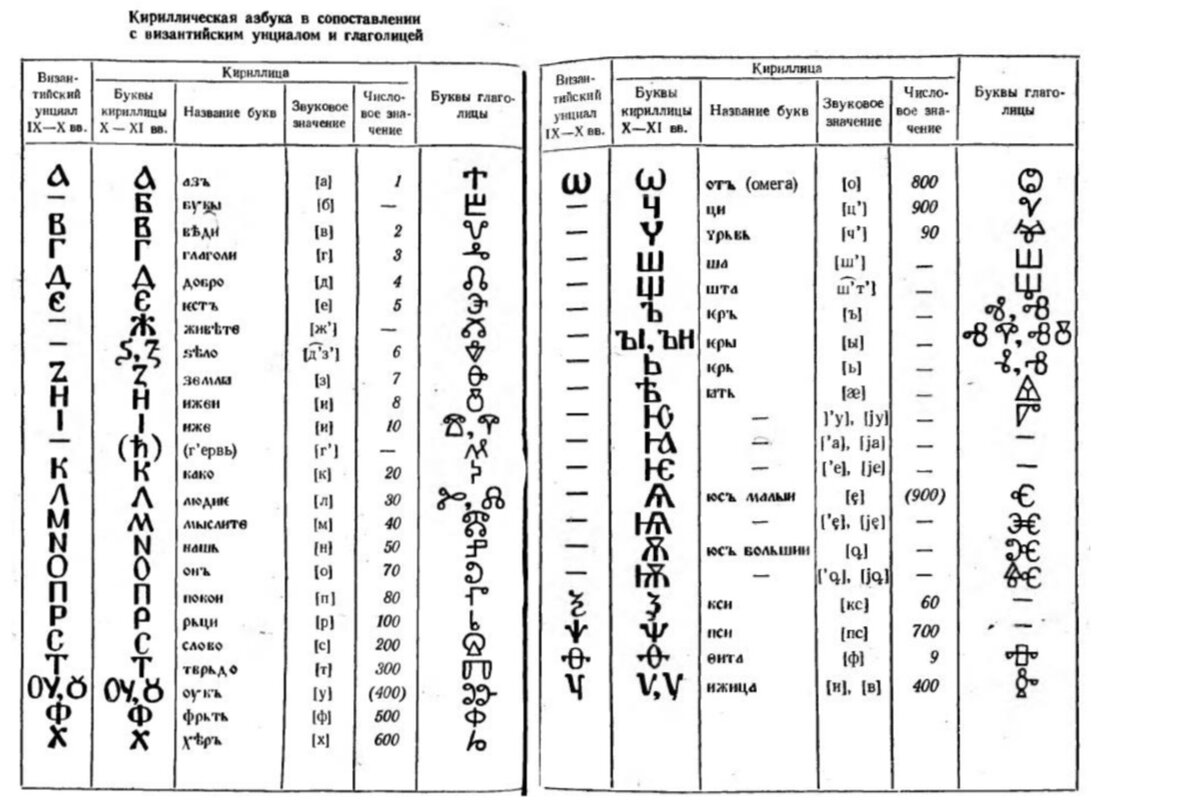 Кириллическая азбука в сопоставлении
с византийским унциалом и глаголицей
Визан-
тийский
унциал
IX—X вв.
Кириллица
Буквы
кириллицы
X — XI вв.
Название букв
Звуковое
значение
Число-
вое зна-
чение
Буквы глаго-
лицы
А А азъ [а] 1 Ⰰ
— Б букы [б] — Ⰱ
В В вѣди [в] 2 Ⰲ
Г Г глаголи [г] 3 Ⰳ
Д Д добро [д] 4 Ⰴ
Є Є ѥстъ [е] 5 Ⰵ
— Ж живѣте [ж’] — Ⰶ
— Ѕ, Ꙁ ѕѣло [д͡’з’] 6 Ⰷ
Z Ꙁ землꙗ [з] 7 Ⰸ
Н Н ижеи [и] 8 Ⰺ
І І иже [и] 10 Ⰹ, Ⰹ
— (ћ) (г’ервь) [г’] — Ⰼ
К К како [к] 20 Ⰽ
Л Л людиѥ [л] 30 Ⰾ, Ⰾ
М М мыслите [м] 40 Ⰿ
N N нашь [н] 50 Ⱀ
О О онъ [о] 70 Ⱁ
П П покои [п] 80 Ⱂ
Р Р рьци [р] 100 Ⱃ
С С слово [с] 200 Ⱄ
Т Т тврьдо [т] 300 Ⱅ
ОУ, Ȣ ОУ, Ȣ оукъ [у] (400) Ⱆ
Ф Ф фрьтъ [ф] 500 Ⱇ
Х Х хѣръ [х] 600 Ⱈ
Визан-
тийский
унциал
IX—X вв.
Кириллица
Буквы
кириллицы
X—XI вв.
Название букв
Звуковое
значение
Число-
вое зна-
чение
Буквы глаго-
лицы
Ѡ Ѡ отъ (омега) [о] 800 Ⱉ
— Ц ци [ц’] 900 Ⱌ
— Ч чрьвь [ч’] 90 Ⱍ
— Ш ша [ш’] — Ⱎ
— Щ шта [ш͡’т’] — Ⱋ
— Ъ ѥръ [ъ] — Ⱏ, Ⱏ
— ЪІ, ЪН ѥры [ы] — ⰟⰉ, ⰟⰊ
— Ь ѥрь [ь] — Ⱐ, Ⱐ
— Ѣ ꙗть [æ] — Ⱑ
— Ю — [’у], [jу] — Ⱓ
— Ꙗ — [’а], [jа] — —
— Ѥ — [’е], [jе] — —
— Ѧ юсъ малыи [ę] (900) Ⱔ
— Ѩ — [’ę], [ję] — Ⱗ
— Ѫ юсъ большии [ǫ] — Ⱘ
— Ѭ — [’ǫ], [jǫ] — Ⱙ
Ѯ Ѯ кси [кс] 60 —
Ѱ Ѱ пси [пс] 700 —
Ѳ Ѳ ѳита [ф] 9 Ⱚ
Ѵ Ѵ, Ѵ ижица [и], [в] 400 Ⱛ